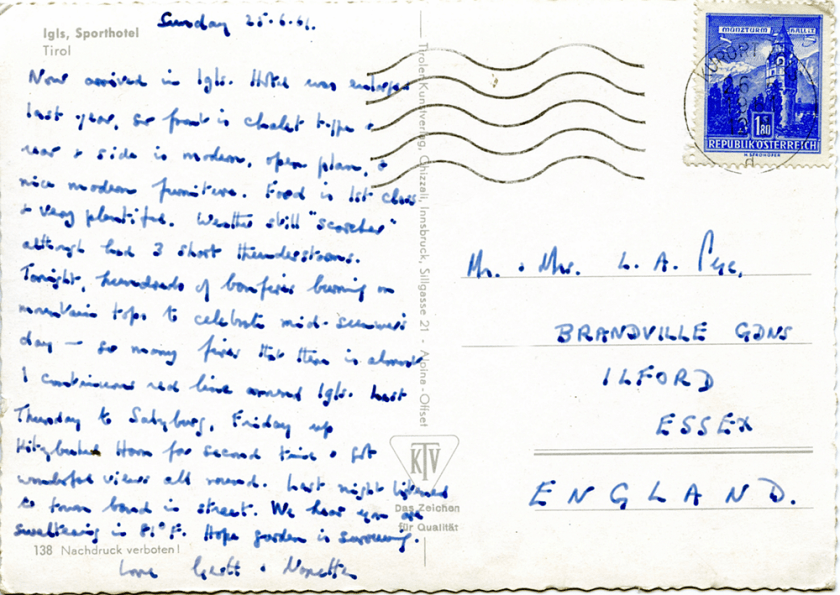 Igls, Sporthotel
Tirol
Sunday 25.6.61.
Now arrived in Igls. Hotel was enlarged
last year, so front is chalet type &
rear & side is modern, open plan, &
nice modern furniture. Food is 1st class
& very plentiful. Weather still "scorcher"
although had 3 short thunderstorms.
Tonight, hundreds of bonfires burning on
mountain tops to celebrate mid-summer's
day — so many fires that there is almost
1 continuous red line around Igls. Last
Thursday to Salzburg, Friday up
Kitzbuhel Horn for second time & got
wonderful views all round. Last night listened
to town band in street. We hear you are
sweltering in 81°F. Hope garden is surviving.
Love
138 Nachdruck verboten!
Tiroler Kunstverlag, Chizzali, Innsbruck, Sillgasse 21 - Alpina-Offset
KTV
Das Zeichen
für Qualität
MÜNZTURM HALL
KURORT
1.80
REPUBLIK ÖSTERREICH
Mr. & Mrs. L. A. Pye,
BRANDVILLE GDNS
ILFORD
ESSEX
ENGLAND.